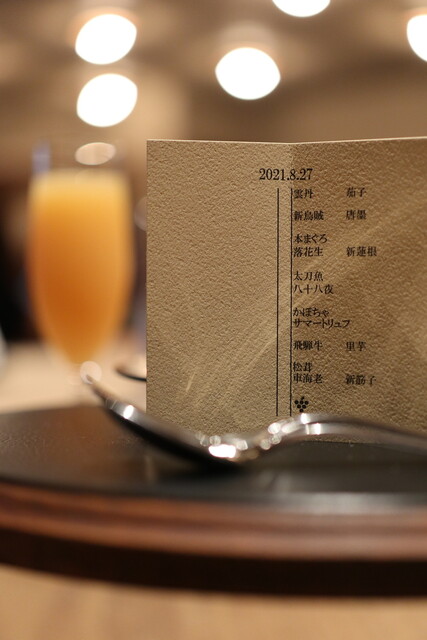 2021.8.27
雲丹 茄子
新烏賊 唐墨
本まぐろ
落花生 新蓮根
太刀魚
八十八夜
かぼちゃ
サマートリュフ
飛騨牛 里芋
松茸
車海老 新筋子